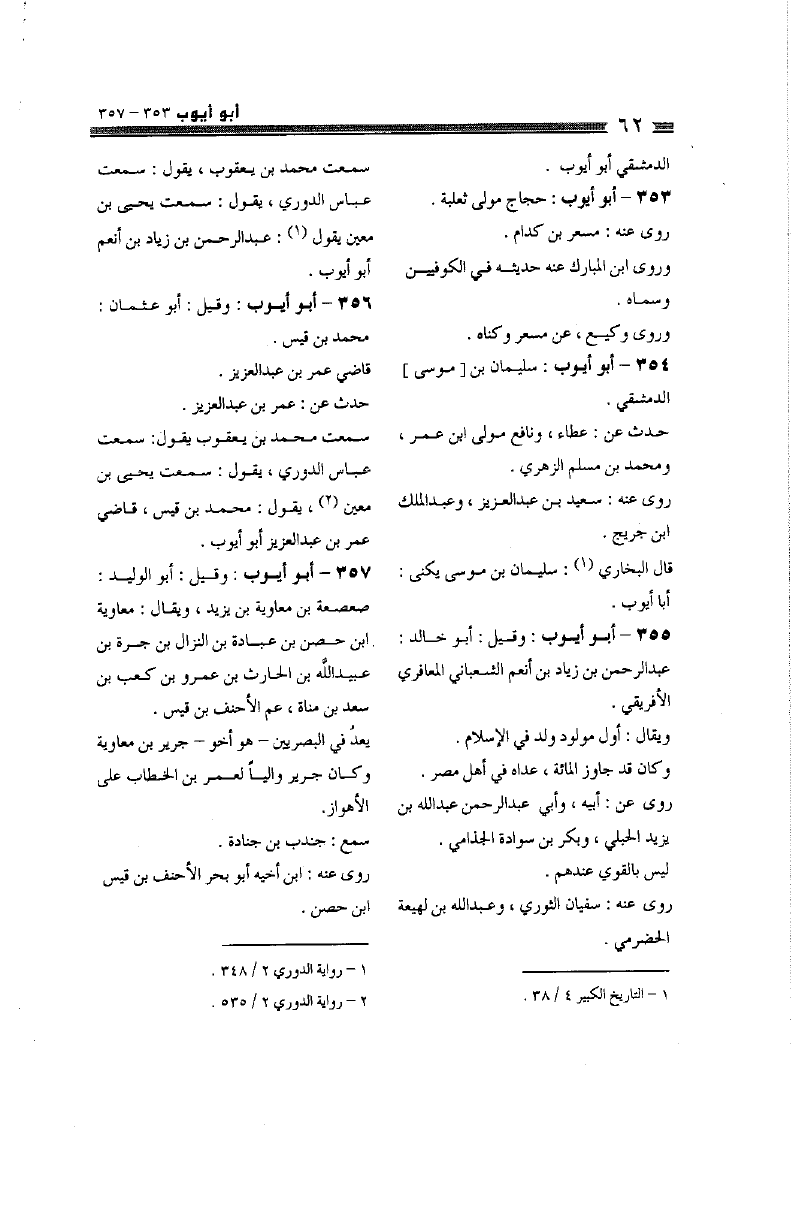 أبو أيوب ٣٥٣ – ٣٥٧
٦٢
الدمشقي أبو أيوب .
٣٥٣ – أبو أيوب : حجاج مولى ثعلبة .
روى عنه : مسعر بن كدام .
وروى ابن المبارك عنه حديثه في الكوفيين
وسماه .
وروى وكيع ، عن مسعر وكناه .
٣٥٤ – أبو أيوب : سليمان بن [ موسى ]
الدمشقي .
حدث عن : عطاء ، ونافع مولى ابن عمر ،
ومحمد بن مسلم الزهري .
روى عنه : سعيد بن عبدالعزيز ، وعبدالملك
ابن جريج .
قال البخاري (١) : سليمان بن موسى يكنى :
أبا أيوب .
٣٥٥ – أبو أيوب : وقيل : أبو خالد :
عبدالرحمن بن زياد بن أنعم الشعباني المعافري
الأفريقي .
ويقال : أول مولود ولد في الإسلام .
وكان قد جاوز المائة ، عداه في أهل مصر .
روى عن : أبيه ، وأبي عبدالرحمن عبدالله بن
يزيد الحبلي ، وبكر بن سوادة الجذامي .
ليس بالقوي عندهم .
روى عنه : سفيان الثوري ، وعبدالله بن لهيعة
الحضرمي .
١ – التاريخ الكبير ٤ / ٣٨ .
سمعت محمد بن يعقوب ، يقول : سمعت
عباس الدوري ، يقول : سمعت يحيى بن
معين يقول (١) : عبدالرحمن بن زياد بن أنعم
أبو أيوب .
٣٥٦ – أبو أيوب : وقيل : أبو عثمان :
محمد بن قيس .
قاضي عمر بن عبدالعزيز .
حدث عن : عمر بن عبدالعزيز .
سمعت محمد بن يعقوب يقول: سمعت
عباس الدوري ، يقول : سمعت يحيى بن
معين (٢) ، يقول : محمد بن قيس ، قاضي
عمر بن عبدالعزيز أبو أيوب .
٣٥٧ – أبو أيوب : وقيل : أبو الوليد :
صعصعة بن معاوية بن يزيد ، ويقال : معاوية
ابن حصن بن عبادة بن النزال بن جرة بن
عبيداللَّه بن الحارث بن عمرو بن كعب بن
سعد بن مناة ، عم الأحنف بن قيس .
يعدُ في البصريين – هو أخو – جرير بن معاوية
وكان جرير والياً لعمر بن الخطاب على
الأهواز.
سمع : جندب بن جنادة .
روى عنه : ابن أخيه أبو بحر الأحنف بن قيس
ابن حصن .
١ – رواية الدوري ٢ / ٣٤٨ .
٢ – رواية الدوري ٢ / ٥٣٥ .